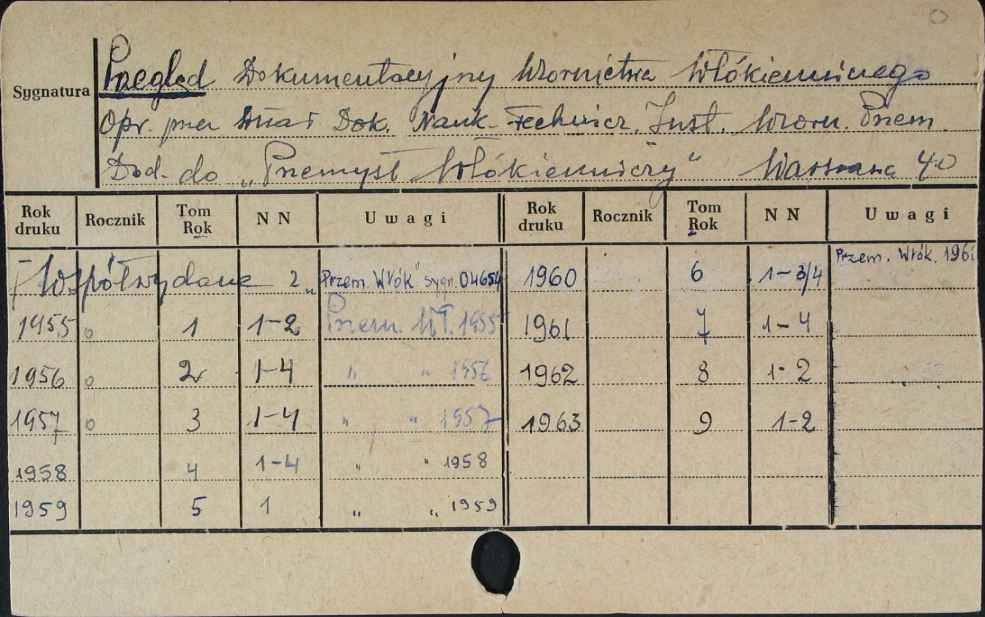 Sygnatura
Przegląd Dokumentacyjny Wzornictwa Włókienniczego
Opr. przez Dział Dok. Nauk-Technicz. Inst. Wzorn. Przem.
Dod. do „Przemysł Włókienniczy" Warszawa 40
Rok druku Rocznik Tom Rok NN Uwagi Rok druku Rocznik Tom Rok NN Uwagi
Współwydane z „Przem. Włók" sygn. 04654 1960 6 1-3/4 Przem. Włók. 1961
1955 o 1 1-2 Przem. Wł. 1955 1961 7 1-4
1956 o 2 1-4 " " 1956 1962 8 1-2
1957 o 3 1-4 " " 1957 1963 9 1-2
1958 4 1-4 " " 1958
1959 5 1 " " 1959